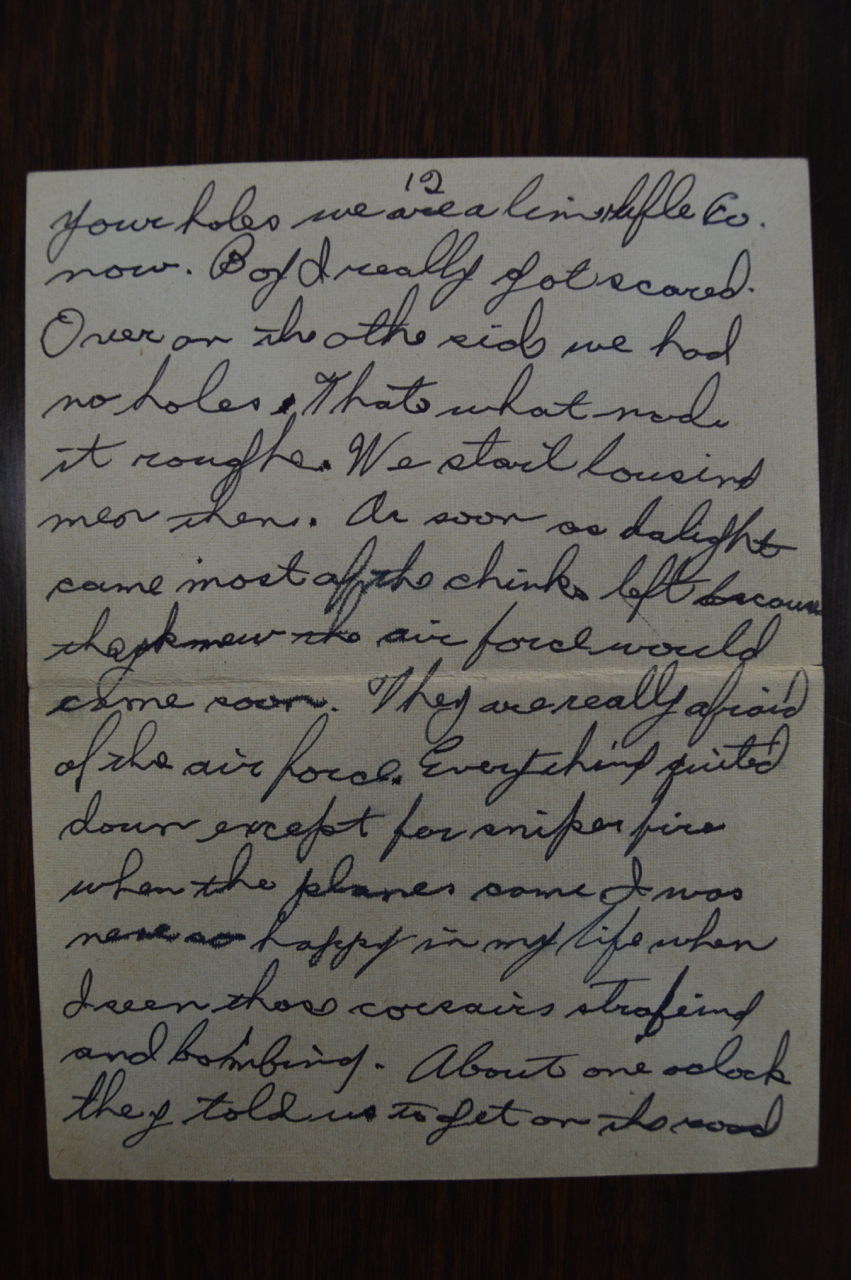 12
your holes we are a line rifle Co.
now. Boy I really got scared.
Over on the othe side we had
no holes. Thats what made
it roughe. We start lousing
men then. As soon as dalight
came most of the chinks left because
they knew the air force would
come soon. They are really afraid
of the air force. Everything quited
down except for sniper fire
when the planes came I was
never so happy in my life when
I seen those corsairs strafeing
and bombing. About one oclock
they told us to get on the road